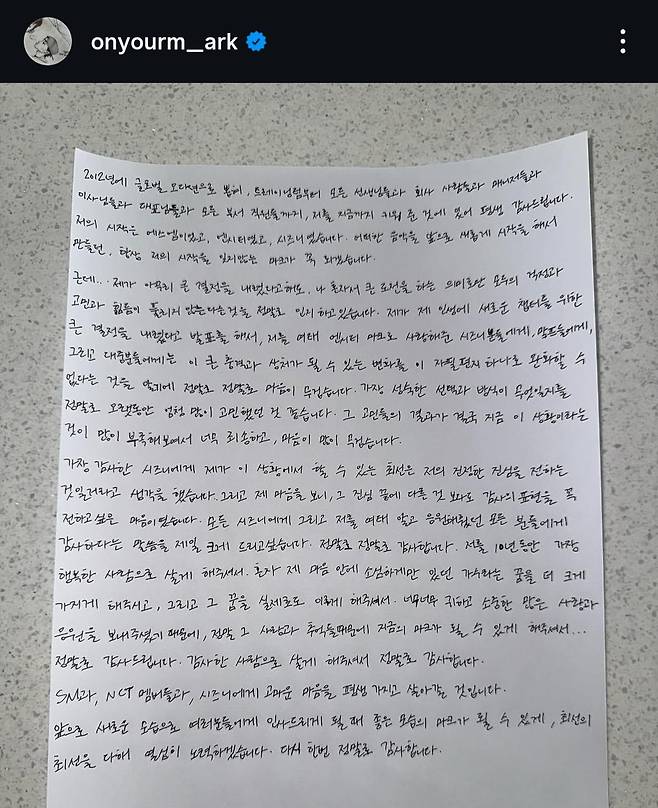 onyourm__ark
2012년에 글로벌 오디션으로 뽑혀, 트레이닝팀부터 모든 선생님들과 회사 사람들과 매니저들과
이사님들과 대표님들과 모든 부서 직원들까지, 저를 지금까지 키워 준 것에 있어 평생 감사드립니다.
저의 시작은 에스엠이었고, 엔시티였고, 시즈니였습니다. 어떠한 음악을 앞으로 새롭게 시작을 해서
만들던, 항상 저의 시작을 잊지않는 마크가 꼭 되겠습니다.
근데... 제가 아무리 큰 결정을 내렸다고해도, 나 혼자서 큰 도전을 하는 의미로만 모두의 걱정과
고민과 힘듦이 풀리지 않는다는것을 정말로 인지하고있습니다. 제가 제 인생에 새로운 챕터를 위한
큰 결정을 내렸다고 발표를 해서, 저를 여태 엔시티 마크로 사랑해준 시즈니분들에게, 팬분들에게,
그리고 대중분들에게는 이 큰 충격과 상처가 될 수 있는 변화를 이 자필편지 하나로 완화할 수
없다는 것을 알기에 정말로 정말로 마음이 무겁습니다. 가장 성숙한 선택과 방식이 무엇일지를
정말로 오랫동안 엄청 많이 고민했던 것 같습니다. 그 고민들의 결과가 결국 지금 이 상황이라는
것이 많이 부족해보여서 너무 죄송하고, 마음이 많이 무겁습니다.
가장 감사한 시즈니에게 제가 이 상황에서 할 수 있는 최선은 저의 진정한 진심을 전하는
것일거라고 생각을 했습니다. 그리고 제 마음을 보니, 그 진심 끝에 다른 것 보다도 감사의 표현을 꼭
전하고싶은 마음이였습니다. 모든 시즈니에게 그리고 저를 여태 알고 응원해줬던 모든 분들에게
감사하다는 말씀을 제일 크게 드리고싶습니다. 정말로 정말로 감사합니다. 저를 10년동안 가장
행복한 사람으로 살게 해주셔서. 혼자 제 마음 안에 소심하게만 있던 가수라는 꿈을 더 크게
가지게 해주시고, 그리고 그 꿈을 실제로도 이루게 해주셔서. 너무너무 귀하고 소중한 많은 사랑과
응원을 보내주셨기 때문에, 정말 그 사랑과 추억들때문에 지금의 마크가 될 수 있게 해주셔서...
정말로 감사드립니다. 감사한 사람으로 살게 해주셔서 정말로 감사합니다.
SM과, NCT 멤버들과, 시즈니에게 고마운 마음을 평생 가지고 살아갈 것입니다.
앞으로 새로운 모습으로 여러분들에게 인사드리게 될 때 좋은 모습의 마크가 될 수 있게, 최선의
최선을 다해 열심히 노력하겠습니다. 다시 한번 정말로 감사합니다.